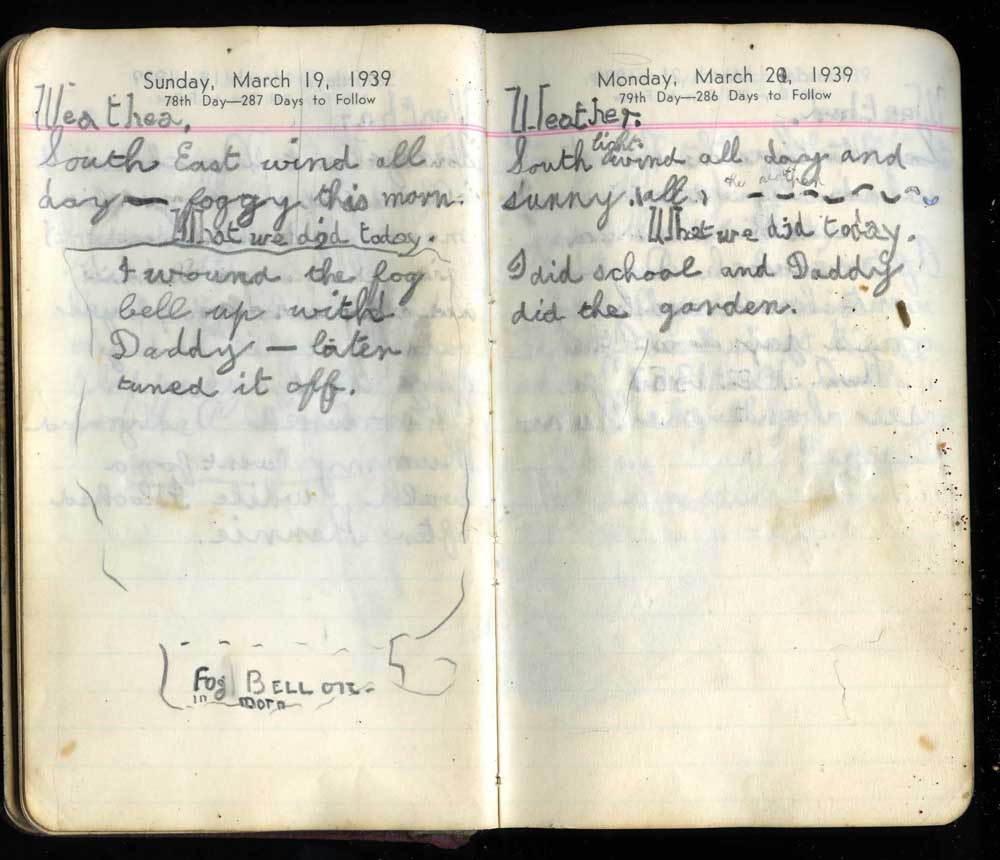 Sunday, March 19, 1939
78th Day—287 Days to Follow
Weathea.
South East wind all
day — foggy this morn.
What we did today.
I wound the fog
bell up with
Daddy — later
tuned it off.
Fog BELL
in morn
Monday, March 20, 1939
79th Day—286 Days to Follow
Weather.
light
South wind all day and
sunny all
the
What we did today.
I did school and Daddy
did the garden.